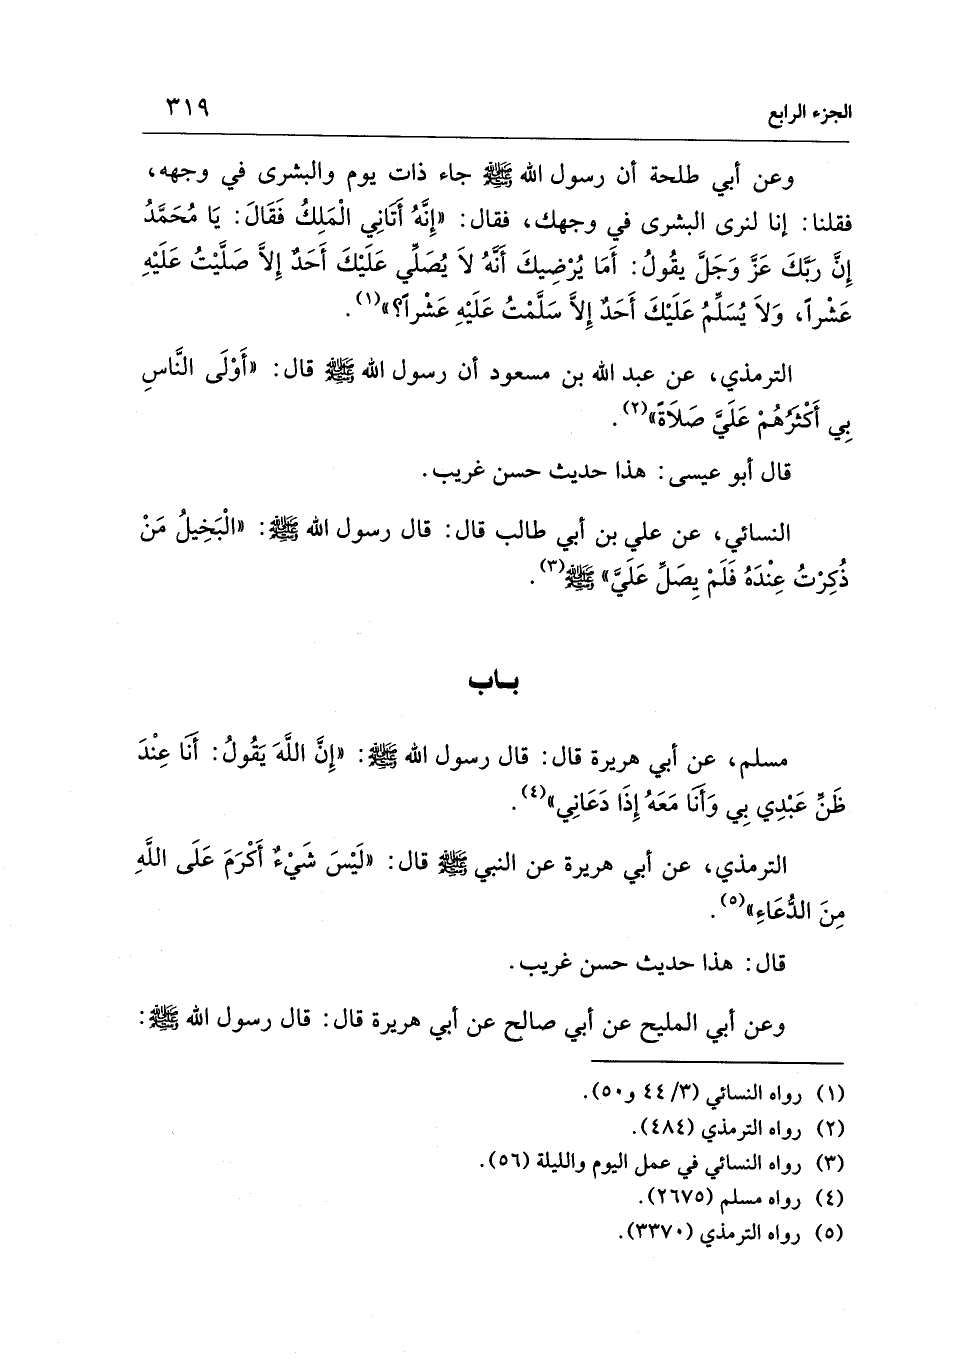 الجزء الرابع ٣١٩
وعن أبي طلحة أن رسول الله ﷺ جاء ذات يوم والبشرى في وجهه،
فقلنا: إنا لنرى البشرى في وجهك، فقال: «إِنَّهُ أَتَانِي الْمَلِكُ فَقَالَ: يَا مُحَمَّدُ
إِنَّ رَبَّكَ عَزَّ وَجَلَّ يقُولُ: أَمَا يُرْضِيكَ أَنَّهُ لاَ يُصَلِّي عَلَيْكَ أَحَدٌ إِلاَّ صَلَّيْتُ عَلَيْهِ
عَشْراً، وَلاَ يُسَلِّمُ عَلَيْكَ أَحَدٌ إِلاَّ سَلَّمْتُ عَلَيْهِ عَشْراً؟»(١).
الترمذي، عن عبد الله بن مسعود أن رسول الله ﷺ قال: «أَوْلَى النَّاسِ
بِي أَكْثَرُهُمْ عَلَيَّ صَلاَةً»(٢).
قال أبو عيسى: هذا حديث حسن غريب.
النسائي، عن علي بن أبي طالب قال: قال رسول الله ﷺ: «الْبَخِيلُ مَنْ
ذُكِرْتُ عِنْدَهُ فَلَمْ يصَلِّ عَلَيَّ» ﷺ(٣).
بـاب
مسلم، عن أبي هريرة قال: قال رسول الله ﷺ: «إِنَّ اللَّهَ يَقُولُ: أَنَا عِنْدَ
ظَنِّ عَبْدِي بِي وَأَنَا مَعَهُ إِذَا دَعَانِي»(٤).
الترمذي، عن أبي هريرة عن النبي ﷺ قال: «لَيْسَ شَيْءٌ أَكْرَمَ عَلَى اللَّهِ
مِنَ الدُّعَاءِ»(٥).
قال: هذا حديث حسن غريب.
وعن أبي المليح عن أبي صالح عن أبي هريرة قال: قال رسول الله ﷺ:
(١) رواه النسائي (٣/ ٤٤ و٥٠).
(٢) رواه الترمذي (٤٨٤).
(٣) رواه النسائي في عمل اليوم والليلة (٥٦).
(٤) رواه مسلم (٢٦٧٥).
(٥) رواه الترمذي (٣٣٧٠).